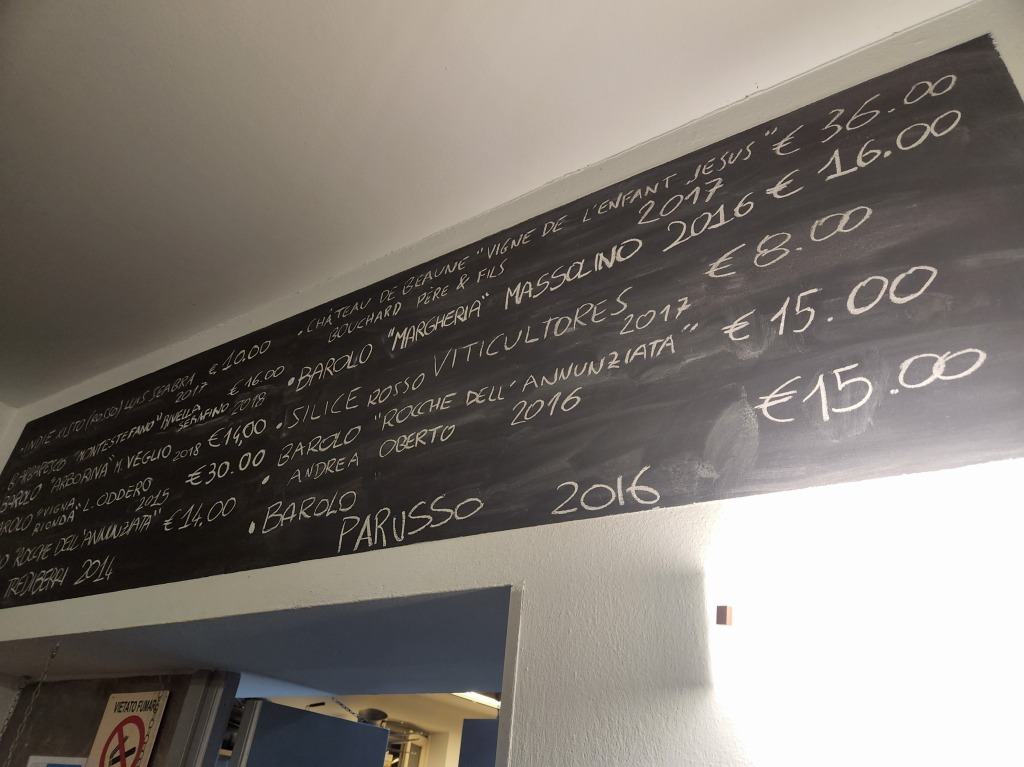 (ROSSO) LUIS SEABRA € 10.00
2017
"MONTESTEFANO" RIVELLA € 16.00
SERAFINO 2018
BAROLO "ARBORINA" M. VEGLIO 2018 € 14,00
BAROLO "VIGNA L. ODDERO € 30.00
RIONDA" 2015
ROCCHE DELL'ANNUNZIATA" € 14,00
TREDIBERRI 2014
• CHÂTEAU DE BEAUNE "VIGNE DE L'ENFANT JESUS" € 36.00
BOUCHARD PÈRE & FILS 2017
• BAROLO "MARGHERIA" MASSOLINO 2016 € 16.00
• SILICE ROSSO VITICULTORES € 8.00
2017
• BAROLO "ROCCHE DELL'ANNUNZIATA" € 15.00
ANDREA OBERTO 2016
• BAROLO € 15.00
PARUSSO 2016
VIETATO FUMARE